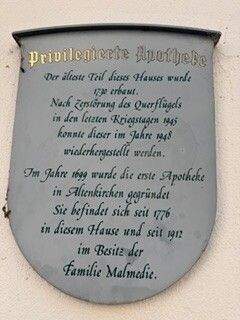 Privilegierte Apotheke
Der älteste Teil dieses Hauses wurde
1730 erbaut.
Nach Zerstörung des Querflügels
in den letzten Kriegstagen 1945
konnte dieser im Jahre 1948
wiederhergestellt werden.
Im Jahre 1699 wurde die erste Apotheke
in Altenkirchen gegründet
Sie befindet sich seit 1776
in diesem Hause und seit 1912
im Besitz der
Familie Malmedie.